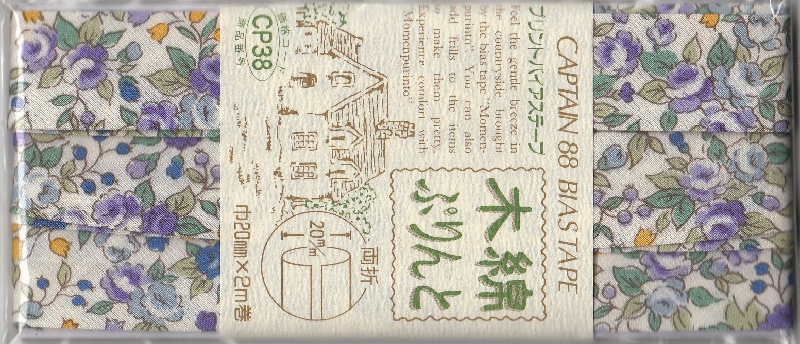 CAPTAIN 88 BIAS TAPE
プリントバイアステープ
Feel the gentle breeze in
the countryside brought
by the bias tape "Momen-
purinto". You can also
add frills to the items
to make them pretty.
Experience comfort with
"Momenpurinto".
価格コード
CP38
商品番号
木綿
ぷりんと
両折
20mm
巾20mm×2m巻